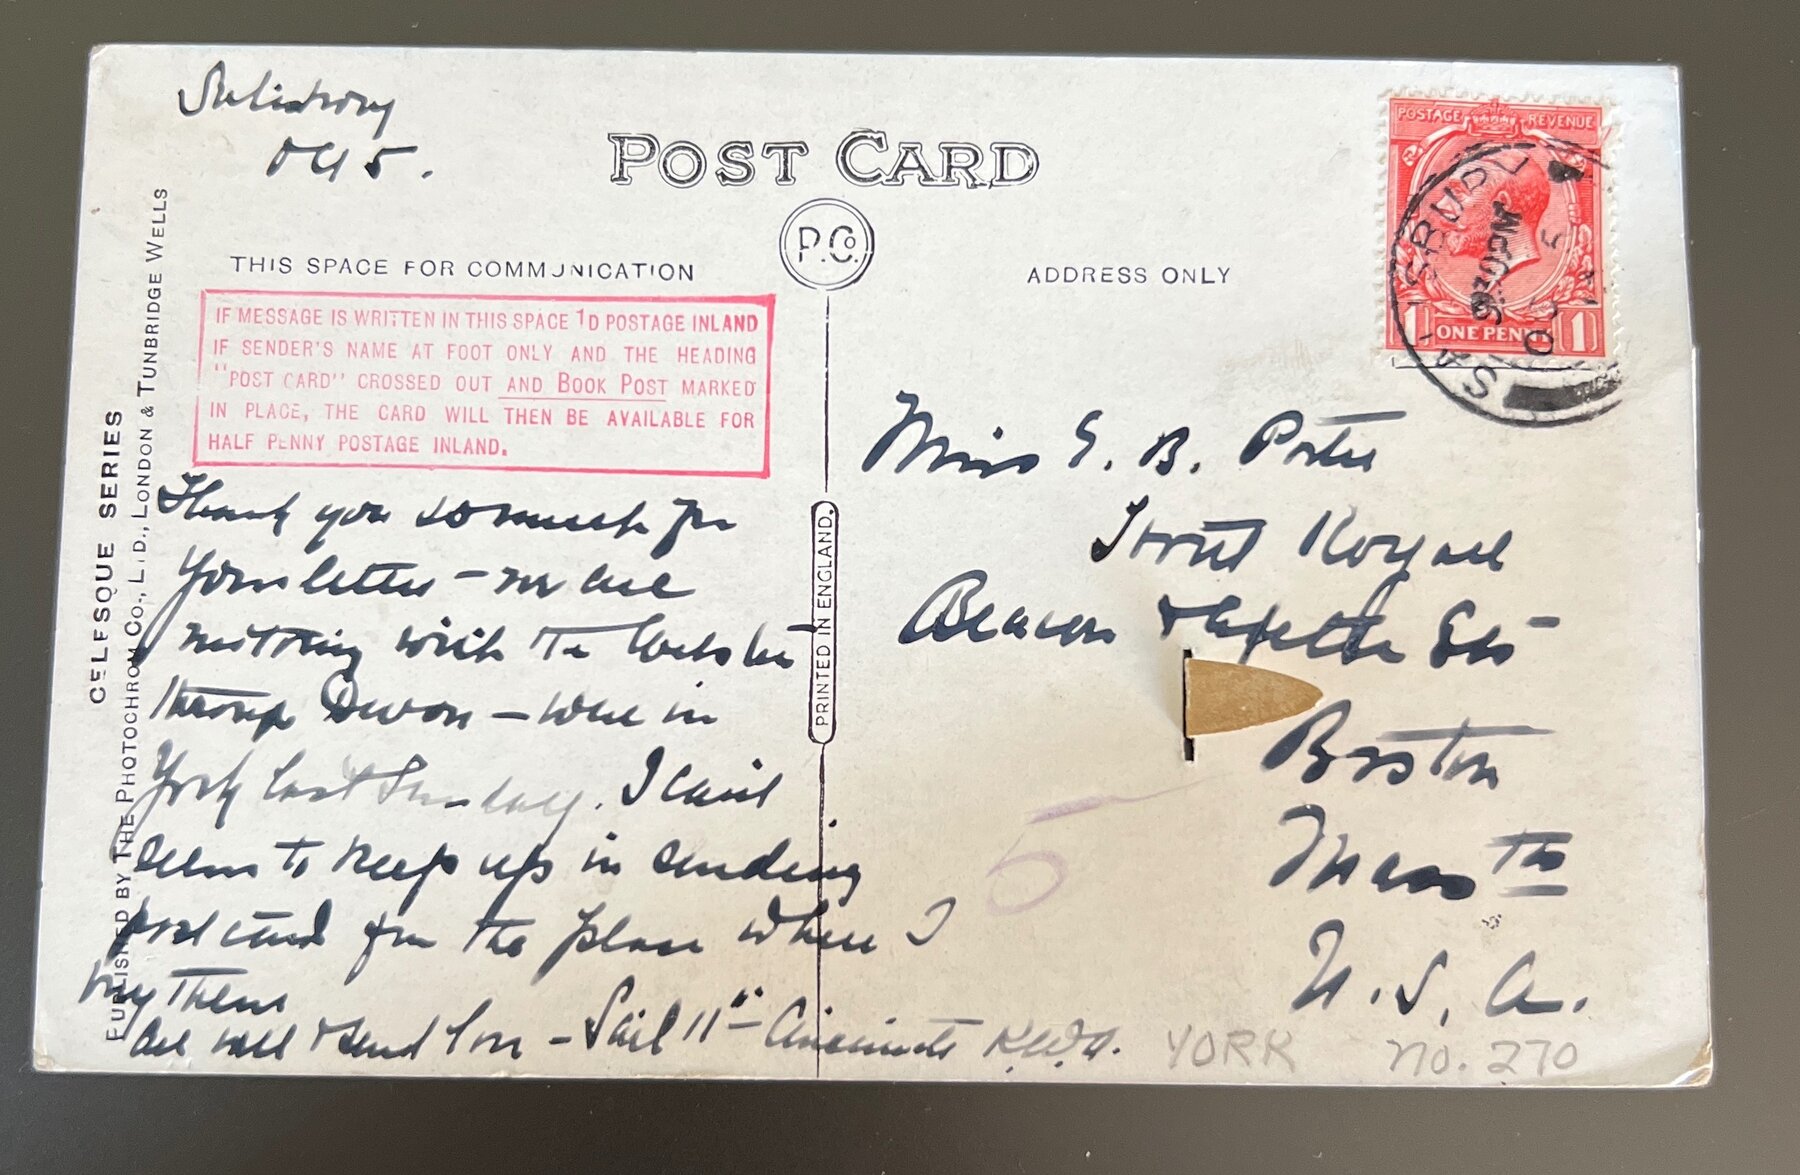 Salisbury
Oct 5.
POST CARD
P.Co.
THIS SPACE FOR COMMUNICATION
ADDRESS ONLY
IF MESSAGE IS WRITTEN IN THIS SPACE 1D POSTAGE INLAND
IF SENDER'S NAME AT FOOT ONLY AND THE HEADING
"POST CARD" CROSSED OUT AND BOOK POST MARKED
IN PLACE, THE CARD WILL THEN BE AVAILABLE FOR
HALF PENNY POSTAGE INLAND.
Thank you so much for
your letter - we are
motoring with the
through Devon - were in
York last Sunday. I can't
seem to keep up in sending
post card from the place where I
buy them
All well & send love - Sail 11th Cincinnati K.W.A.
CELESQUE SERIES
PUBLISHED BY THE PHOTOCHROM CO., LTD., LONDON & TUNBRIDGE WELLS
PRINTED IN ENGLAND.
POSTAGE REVENUE
1 ONE PENNY 1
SALISBURY
5 OC
Miss E. B. Porter
Hotel Royal
Beacon & Sts
Boston
Mass
U. S. A.
5
YORK
NO. 270